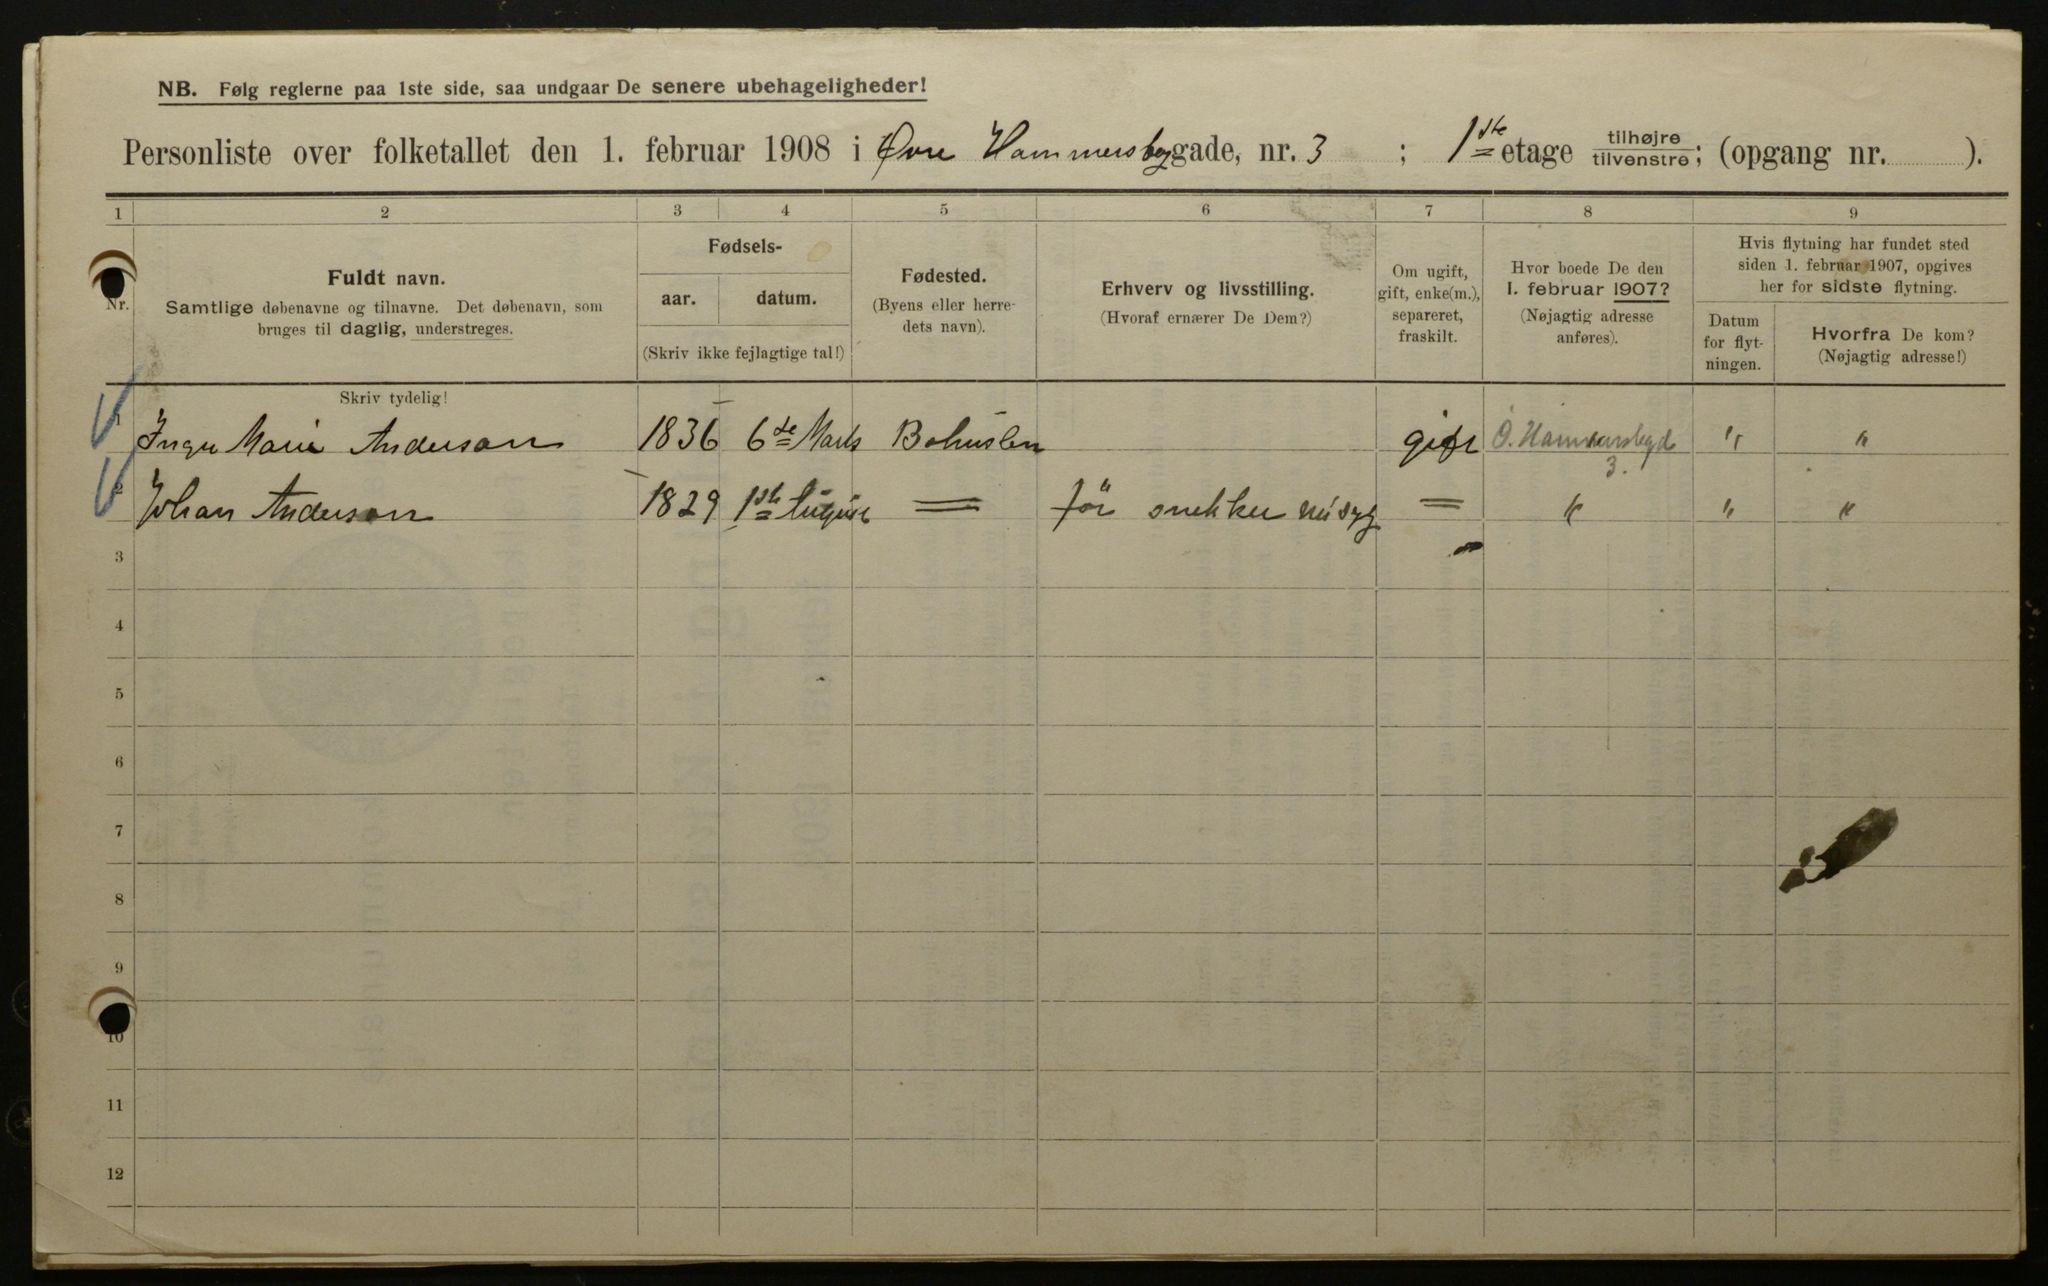 NB. Følg reglerne paa 1ste side, saa undgaar De senere ubehageligheder!
Personliste over folketallet den 1. februar 1908 i Øvre Hammersbygade, nr. 3 ; 1ste etage tilhøjre tilvenstre; (opgang nr. ).
1 2 3 4 5 6 7 8 9
Nr.
Fuldt navn.
Samtlige døbenavne og tilnavne. Det døbenavn, som
bruges til daglig, understreges.
Skriv tydelig!
Fødsels-
aar. datum.
(Skriv ikke fejlagtige tal!)
Fødested.
(Byens eller herre-
dets navn).
Erhverv og livsstilling.
(Hvoraf ernærer De Dem?)
Om ugift,
gift, enke(m.),
separeret,
fraskilt.
Hvor boede De den
1. februar 1907?
(Nøjagtig adresse
anføres).
Hvis flytning har fundet sted
siden 1. februar 1907, opgives
her for sidste flytning.
Datum
for flyt-
ningen.
Hvorfra De kom?
(Nøjagtig adresse!)
1 Inger Marie Anderson 1836 6te Marts Bohuslen gift Ö. Hammersbygd 3. " "
2 Johan Anderson 1829 1ste August = för snekker nu syg = " " "
3
4
5
6
7
8
9
10
11
12